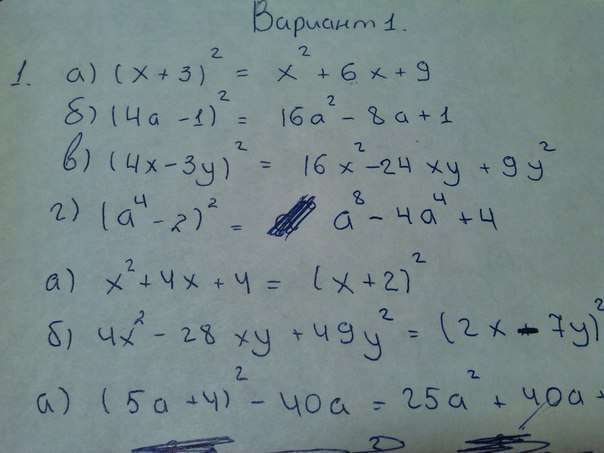 Вариант 1.
1. а) (x + 3)² = x² + 6x + 9
б) (4a - 1)² = 16a² - 8a + 1
в) (4x - 3y)² = 16x² - 24xy + 9y²
г) (a⁴ - 2)² = a⁸ - 4a⁴ + 4
а) x² + 4x + 4 = (x + 2)²
б) 4x² - 28xy + 49y² = (2x - 7y)²
а) (5a + 4)² - 40a = 25a² + 40a +